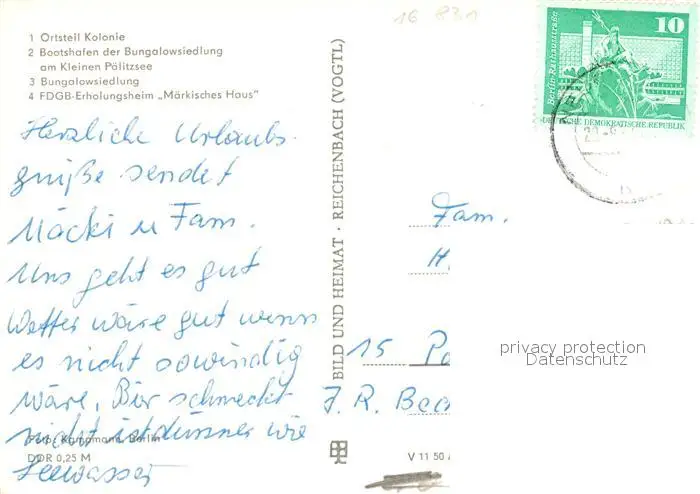 16 831
1 Ortsteil Kolonie
2 Bootshafen der Bungalowsiedlung
am Kleinen Pälitzsee
3 Bungalowsiedlung
4 FDGB-Erholungsheim „Märkisches Haus"
Herzliche Urlaubs-
grüße sendet
Mäcki u Fam.
Uns geht es gut
Wetter wäre gut wenn
es nicht so windig
wäre. Bier schmeckt
nicht ist dünner wie
Seewasser
Foto: Kampmann, Berlin
DDR 0,25 M
BILD UND HEIMAT · REICHENBACH (VOGTL)
V 11 50
Berlin-Rathausstraße
10
DEUTSCHE DEMOKRATISCHE REPUBLIK
Fam.
H
15 Po
J. R. Bec
privacy protection
Datenschutz